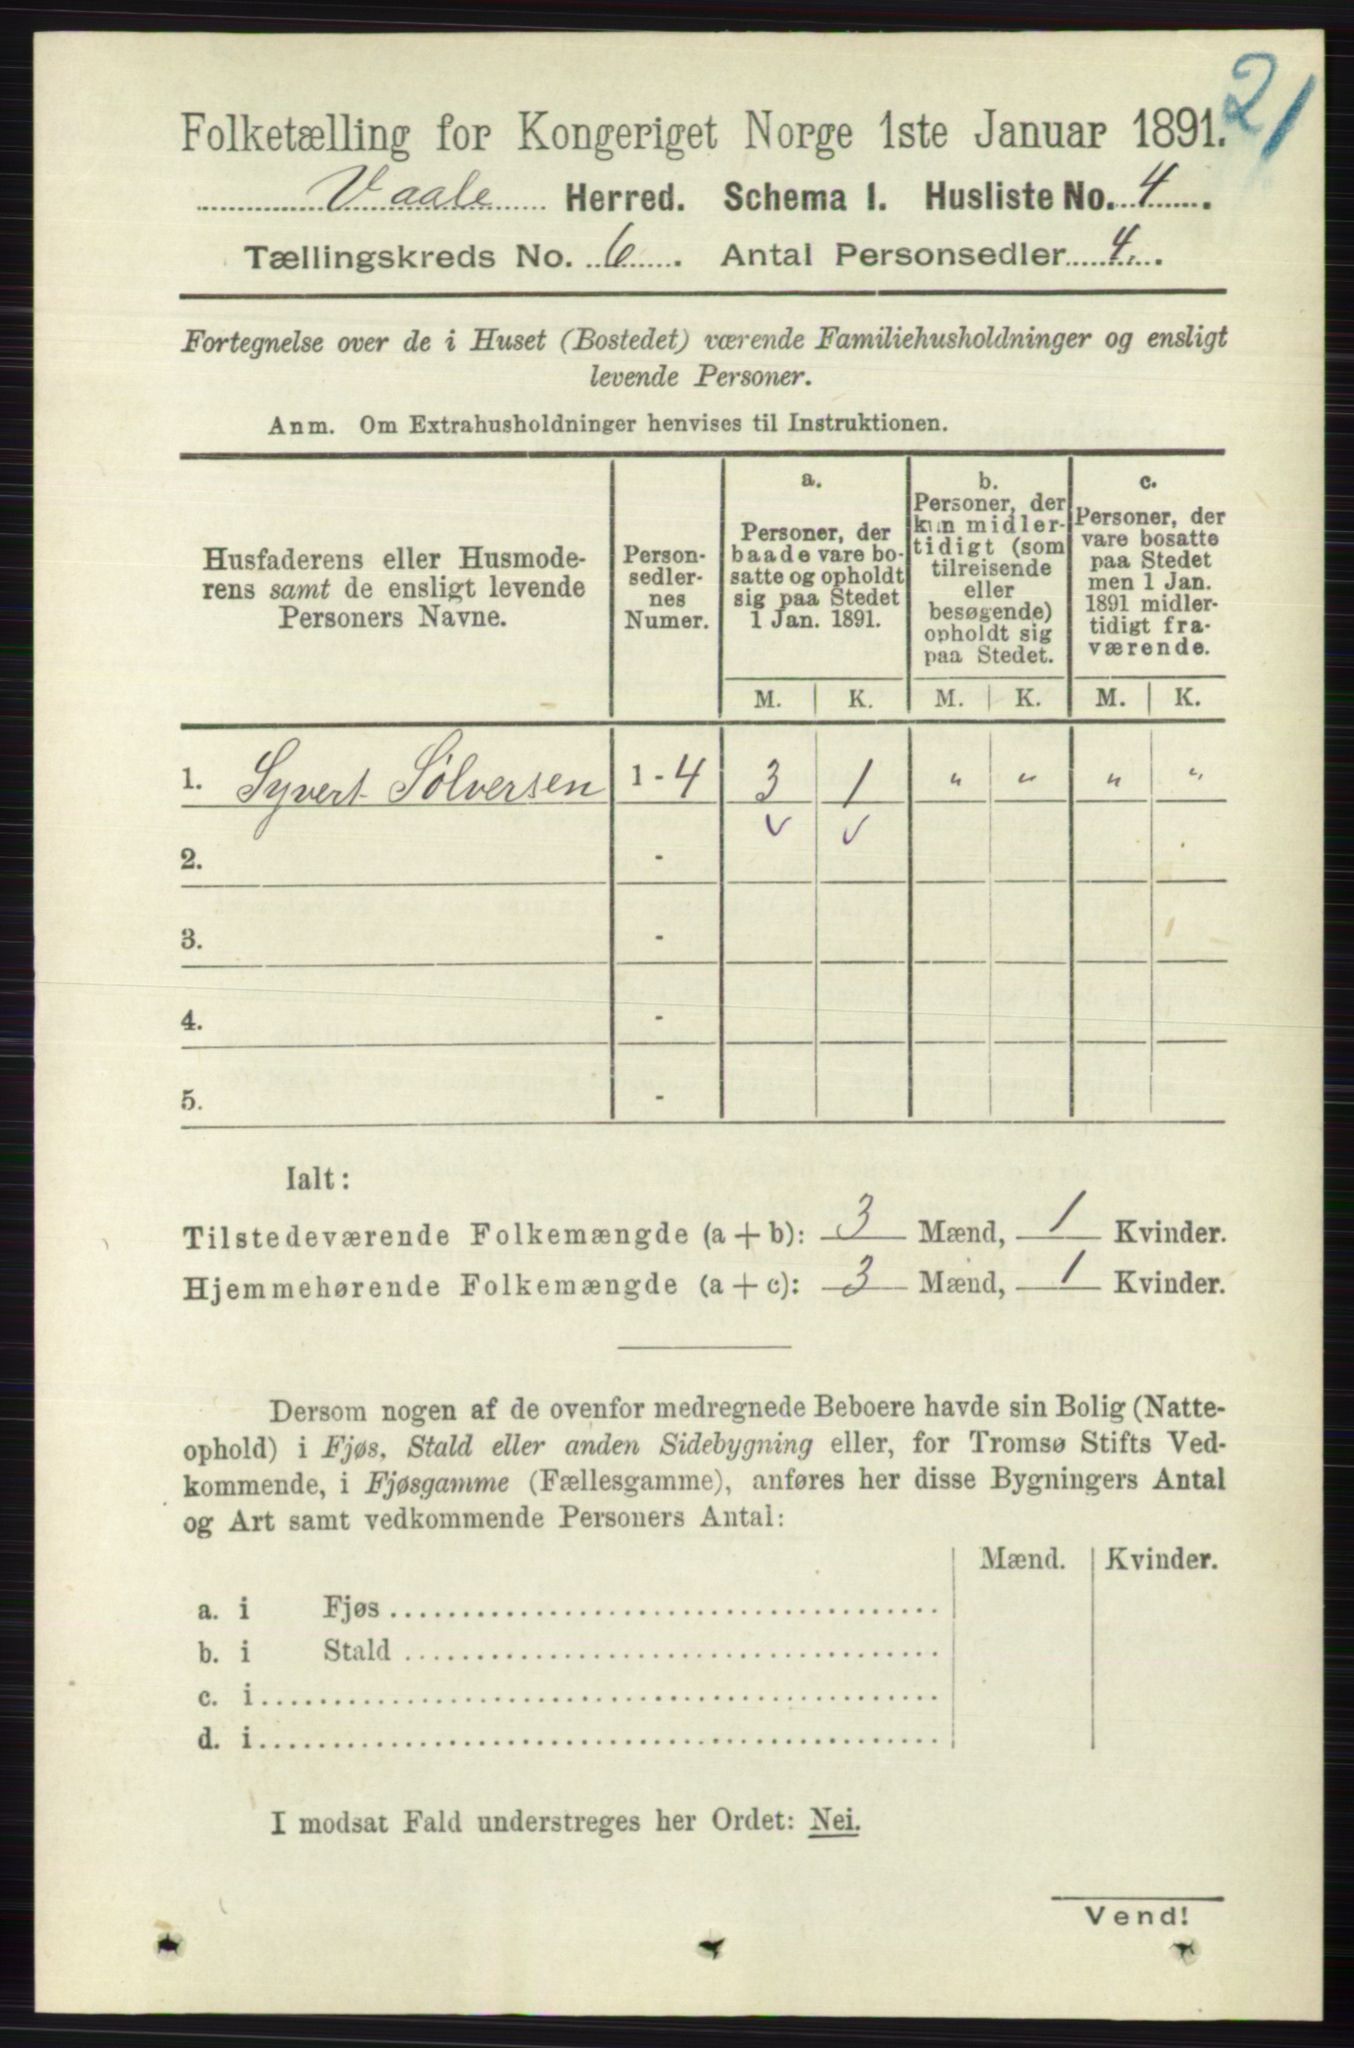 21
Folketælling for Kongeriget Norge 1ste Januar 1891.
Vaale Herred. Schema 1. Husliste No. 4.
Tællingskreds No. 6. Antal Personsedler 4.
Fortegnelse over de i Huset (Bostedet) værende Familiehusholdninger og ensligt
levende Personer.
Anm. Om Extrahusholdninger henvises til Instruktionen.
Husfaderens eller Husmode-
rens samt de ensligt levende
Personers Navne.
Person-
sedler-
nes
Numer.
a.
Personer, der
baade vare bo-
satte og opholdt
sig paa Stedet
1 Jan. 1891.
b.
Personer, der
kun midler-
tidigt (som
tilreisende
eller
besøgende)
opholdt sig
paa Stedet.
c.
Personer, der
vare bosatte
paa Stedet
men 1 Jan.
1891 midler-
tidigt fra-
værende.
M. K. M. K. M. K.
1. Syvert Sølversen 1 - 4 3 1 " " " "
2. -
3. -
4. -
5. -
Ialt:
Tilstedeværende Folkemængde (a + b): 3 Mænd, 1 Kvinder.
Hjemmehørende Folkemængde (a + c): 3 Mænd, 1 Kvinder.
Dersom nogen af de ovenfor medregnede Beboere havde sin Bolig (Natte-
ophold) i Fjøs, Stald eller anden Sidebygning eller, for Tromsø Stifts Ved-
kommende, i Fjøsgamme (Fællesgamme), anføres her disse Bygningers Antal
og Art samt vedkommende Personers Antal:
Mænd. Kvinder.
a. i Fjøs
b. i Stald
c. i
d. i
I modsat Fald understreges her Ordet: Nei.
Vend!